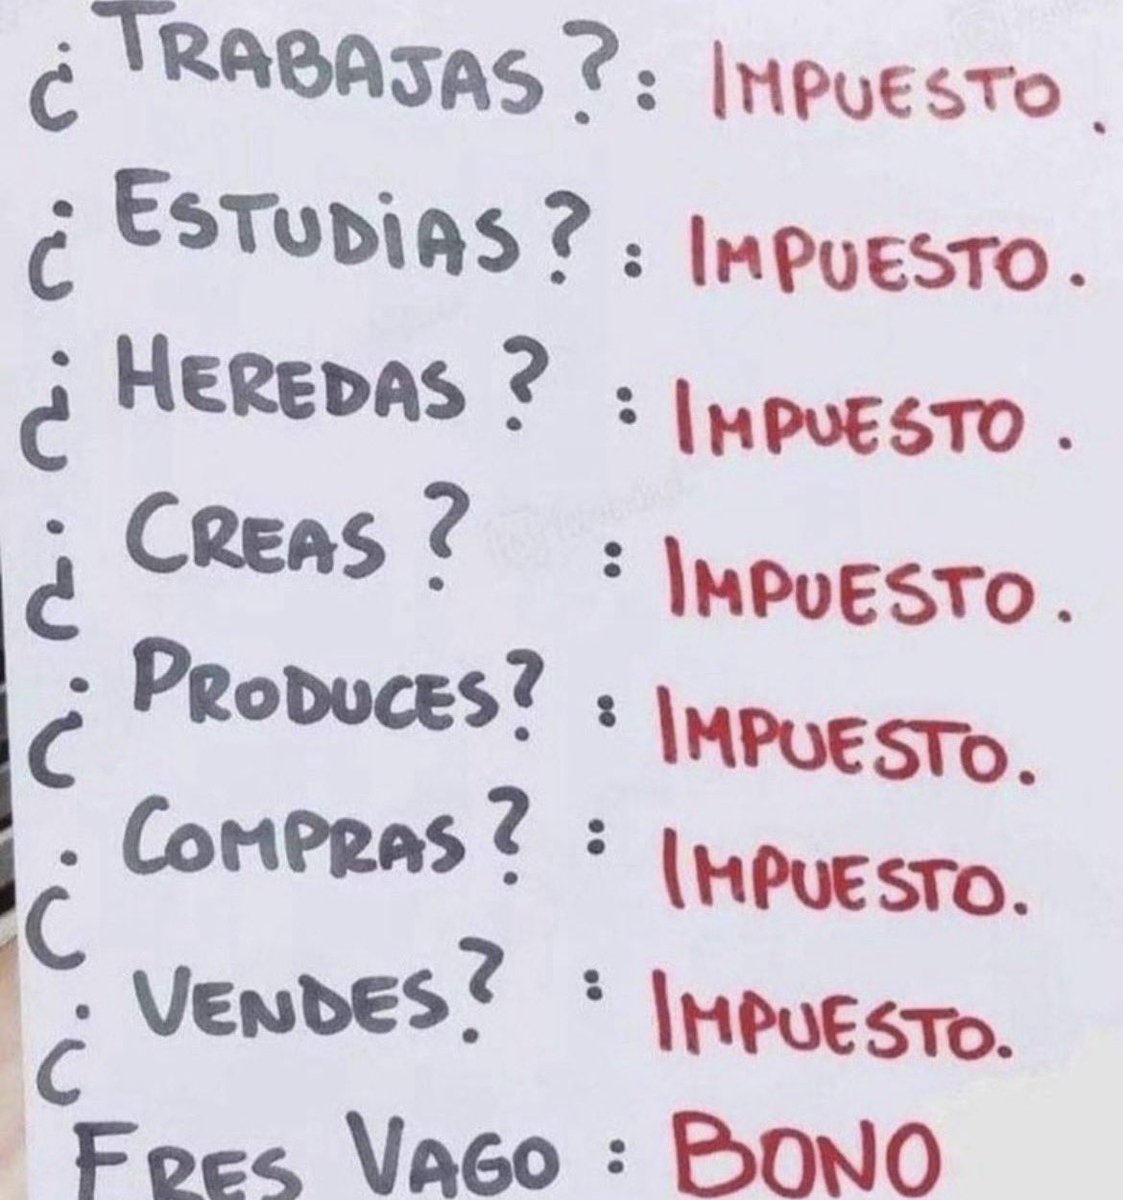 ¿TRABAJAS?: IMPUESTO.
¿ESTUDIAS?: IMPUESTO.
¿HEREDAS?: IMPUESTO.
¿CREAS?: IMPUESTO.
¿PRODUCES?: IMPUESTO.
¿COMPRAS?: IMPUESTO.
¿VENDES?: IMPUESTO.
ERES VAGO: BONO